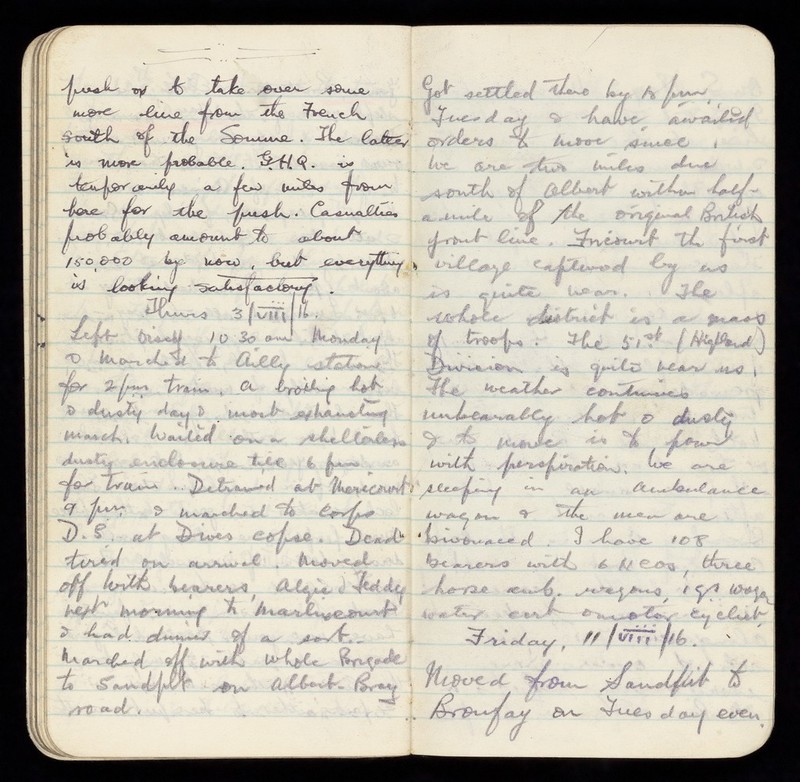 push or to take over some
more line from the French
south of the Somme. The latter
is more probable. G.H.Q. is
temporarily a few miles from
here for the push. Casualties
probably amount to about
150,000 by now, but everything
is looking satisfactory.
Thurs 3/viii/16.
Left 10 30 am Monday
& marched to Ailly station
for 2 pm train. A broiling hot
& dusty day & most exhausting
march. Waited on a shelterless
dusty enclosure till 6 pm
for train. Detrained at Mericourt
9 pm & marched to Corps
D.S. at Dives copse. Dead
tired on arrival. Moved
off with bearers, Algie & Teddy
next morning to
& had dinner of a sort.
Marched off with whole Brigade
to Sandpit on Albert-Bray
road.
Got settled there by pm
Tuesday & have awaited
orders to move since.
We are two miles due
south of Albert within half-
a-mile of the original British
front line. Fricourt the first
village captured by us
is quite near. The
whole district is a mass
of troops. The 51st (Highland)
Division is quite near us.
The weather continues
unbearably hot & dusty
& to move is to pour
with perspiration. We are
sleeping in an ambulance
wagon & the men are
bivouaced. I have 108
bearers with 6 NCOs, three
horse amb. wagons, 1 gs wagon
water cart & motor cyclist.
Friday, 11/viii/16.
Moved from Sandpit to
Bronfay on Tuesday even.